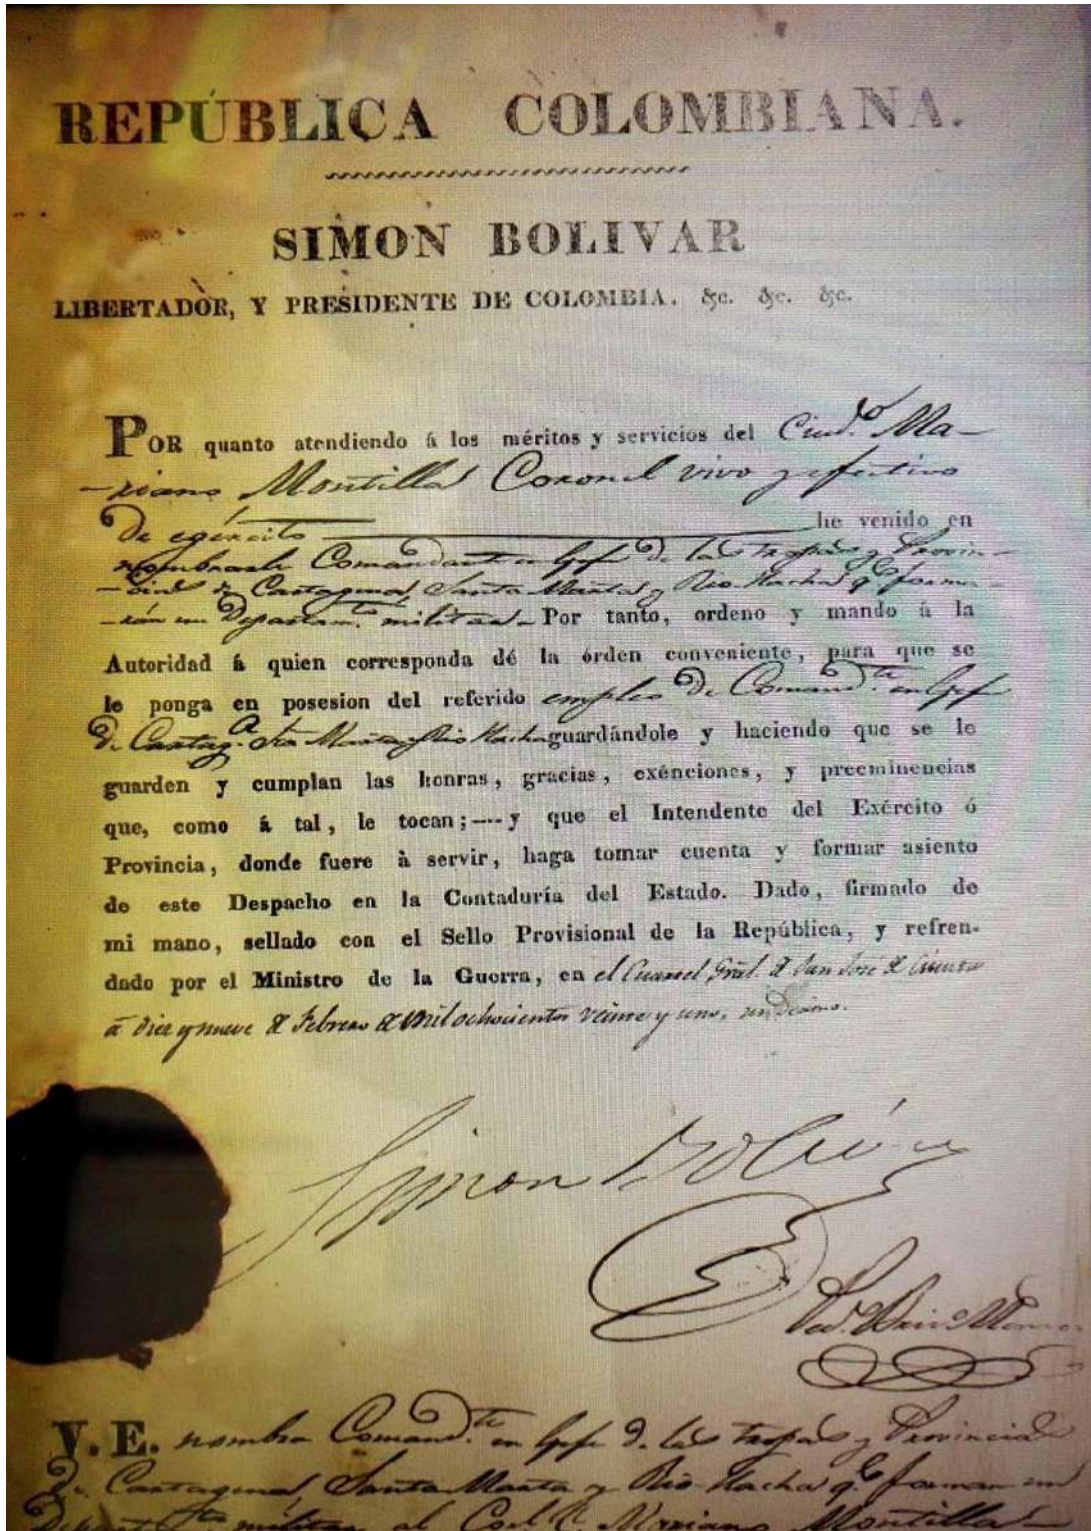 REPÚBLICA COLOMBIANA.
SIMON BOLIVAR
LIBERTADOR, Y PRESIDENTE DE COLOMBIA. &c. &c. &c.
POR quanto atendiendo á los méritos y servicios del Ciud.º Ma-
-riano Montilla Coronel vivo y efectivo
De egército he venido en
nombrarle Comandante en Gefe de las tropas y Provin-
-cias de Cartagena, Santa Marta y Rio Hacha qe. forma-
-rán un Departam.to militar - Por tanto, ordeno y mando á la
Autoridad á quien corresponda dé la órden conveniente, para que se
le ponga en posesion del referido empleo De Comand.te en Gefe
De Cartag.a Sta Marta y Rio Hacha guardándole y haciendo que se le
guarden y cumplan las honras, gracias, exénciones, y preeminencias
que, como á tal, le tocan;---y que el Intendente del Exército ó
Provincia, donde fuere à servir, haga tomar cuenta y formar asiento
de este Despacho en la Contaduría del Estado. Dado, firmado de
mi mano, sellado con el Sello Provisional de la República, y refren-
dado por el Ministro de la Guerra, en el Cuartel Gral. de San José de Cúcuta
á diez y nueve de Febrero de mil ochocientos veinte y uno, undécimo.
Simon Bolívar
V. E. nombra Comand.te en Gefe De las tropas y Provincias
De Cartagena Santa Marta y Rio Hacha qe. forman un
Departto militar al Cor.l C. Mariano Montilla